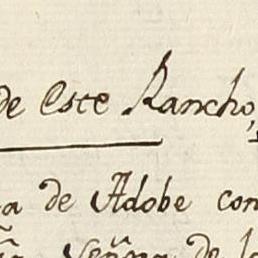 de Este Rancho,
a de Adobe con
Señ̃a de